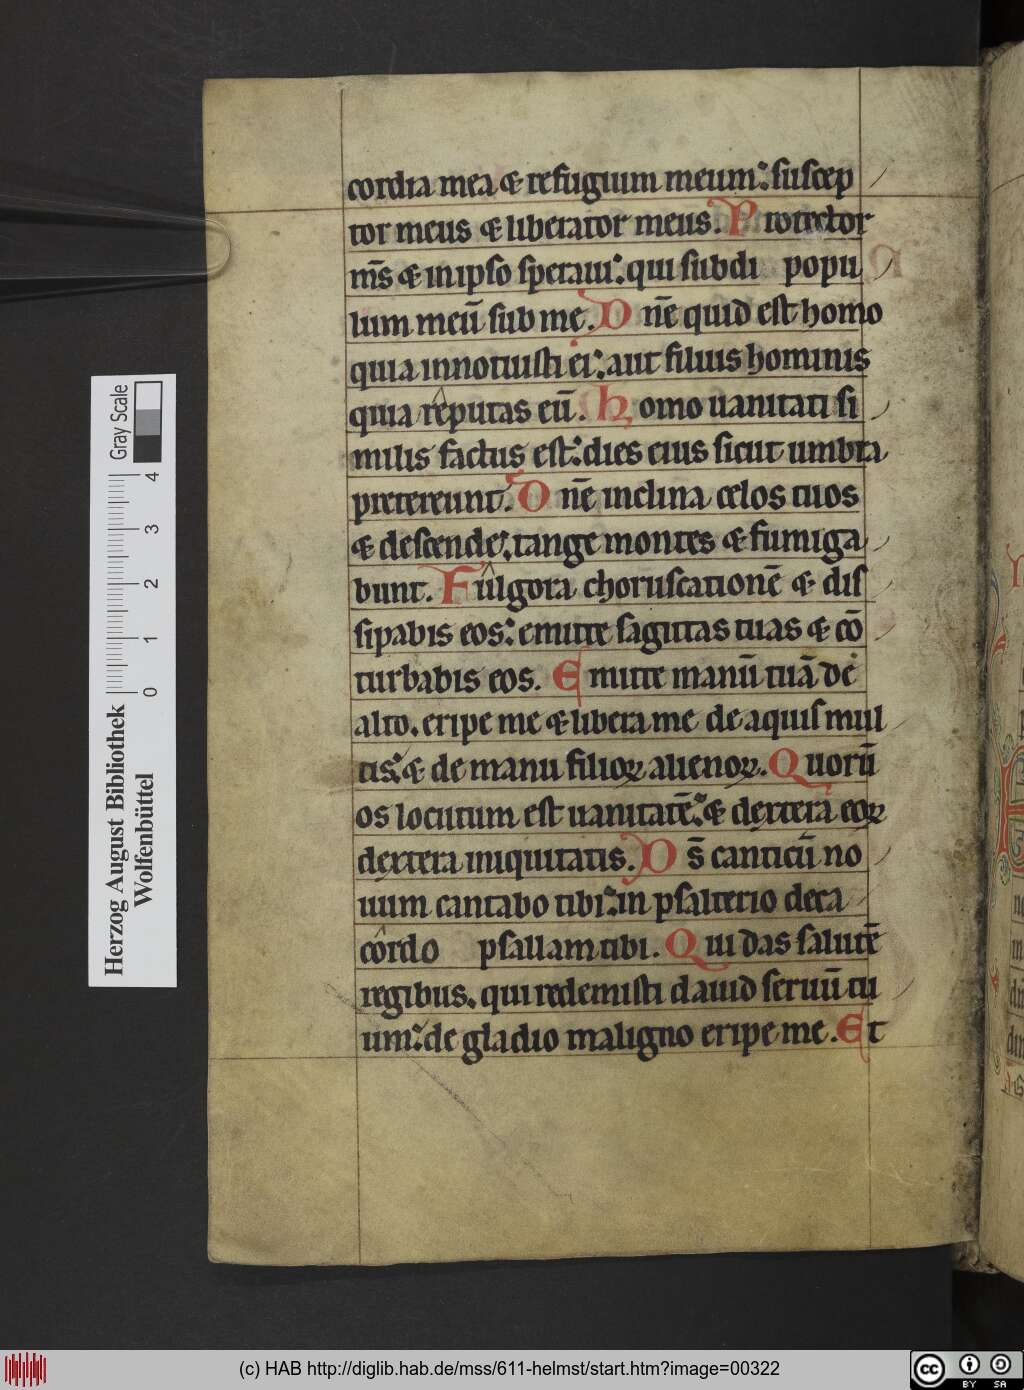 cordia mea & refugium meum: suscep
tor meus & liberator meus. Protector
ms̄ & in ipso speraui: qui subdi popu
lum meū sub me. Dnē quid est homo
quia innotuisti ei: aut filius hominis
quia reputas eū. Homo uanitati si
milis factus est: dies eius sicut umbra
pretereunt. Dnē inclina celos tuos
& descende: tange montes & fumiga
bunt. Fulgora choruscationē & dis
sipabis eos: emitte sagittas tuas & cō
turbabis eos. Emitte manū tuā de
alto. eripe me & libera me de aquis mul
tis: & de manu filioꝝ alienoꝝ. Quorū
os locutum est uanitatē: & dextera eoꝝ
dextera iniquitatis. Ds̄ canticū no
uum cantabo tibi: in psalterio deca
cordo psallam tibi. Qui das salutē
regibus. qui redemisti dauid seruū tu
um: de gladio maligno eripe me. Et
Herzog August Bibliothek
Wolfenbüttel
0 1 2 3 4
Gray Scale
(c) HAB http://diglib.hab.de/mss/611-helmst/start.htm?image=00322
cc BY SA